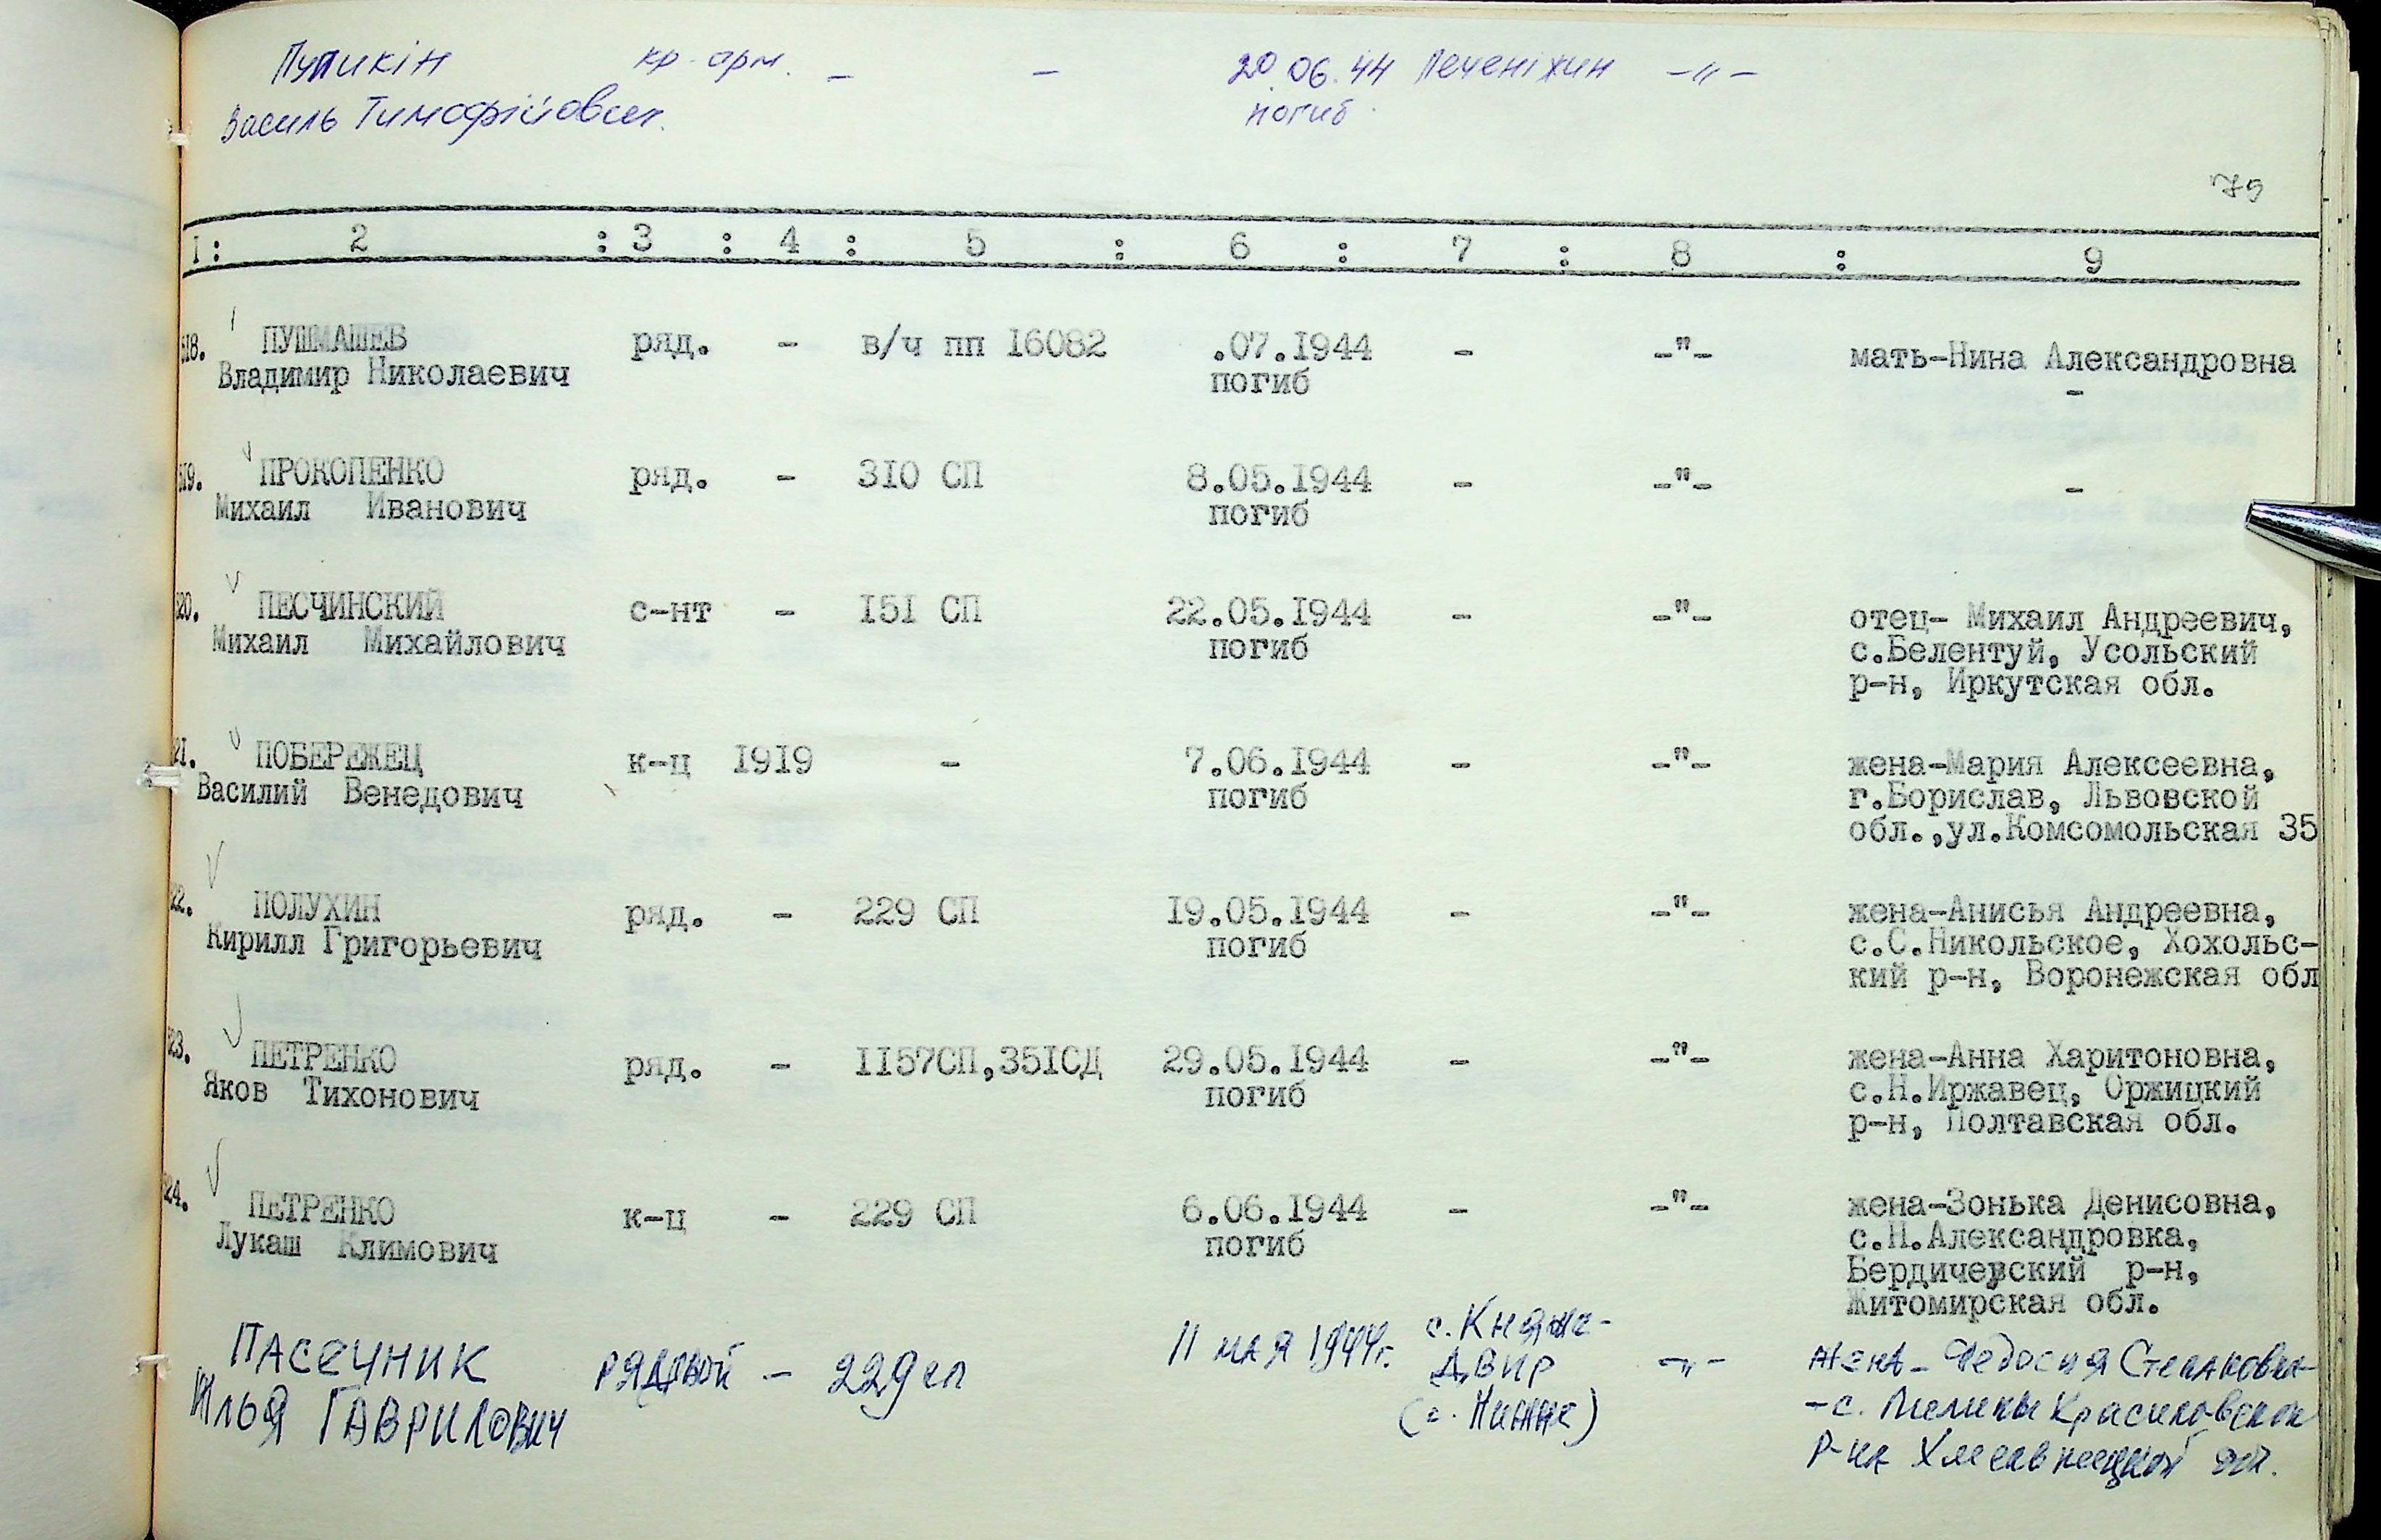 Пупикін кр-арм. - - 20.06.44 Печеніжин -"-
Василь Тимофійович погиб
75
I: 2 : 3 : 4 : 5 : 6 : 7 : 8 : 9
518. ПУШМАШЕВ ряд. - в/ч пп 16082 .07.1944 - -"- мать-Нина Александровна
Владимир Николаевич погиб -
519. ПРОКОПЕНКО ряд. - 310 СП 8.05.1944 - -"- -
Михаил Иванович погиб
520. ПЕСЧИНСКИЙ с-нт - 151 СП 22.05.1944 - -"- отец- Михаил Андреевич,
Михаил Михайлович погиб с.Белентуй, Усольский
р-н, Иркутская обл.
21. ПОБЕРЕЖЕЦ к-ц 1919 - 7.06.1944 - -"- жена-Мария Алексеевна,
Василий Венедович погиб г.Борислав, Львовской
обл.,ул.Комсомольская 35
22. ПОЛУХИН ряд. - 229 СП 19.05.1944 - -"- жена-Анисья Андреевна,
Кирилл Григорьевич погиб с.С.Никольское, Хохольс-
кий р-н, Воронежская обл
23. ПЕТРЕНКО ряд. - 1157СП,351СД 29.05.1944 - -"- жена-Анна Харитоновна,
Яков Тихонович погиб с.Н.Иржавец, Оржицкий
р-н, Полтавская обл.
24. ПЕТРЕНКО к-ц - 229 СП 6.06.1944 - -"- жена-Зонька Денисовна,
Лукаш Климович погиб с.Н.Александровка,
Бердичевский р-н,
Житомирская обл.
ПАСЕЧНИК рядовой - 229 сп 11 мая 1944г. с. Княже- -"- жена - Федосия Степановна
Илья ГАВРИЛОВИЧ Двир - с. Красиловского
(с. Нижне) р-на Хмельницкой обл.